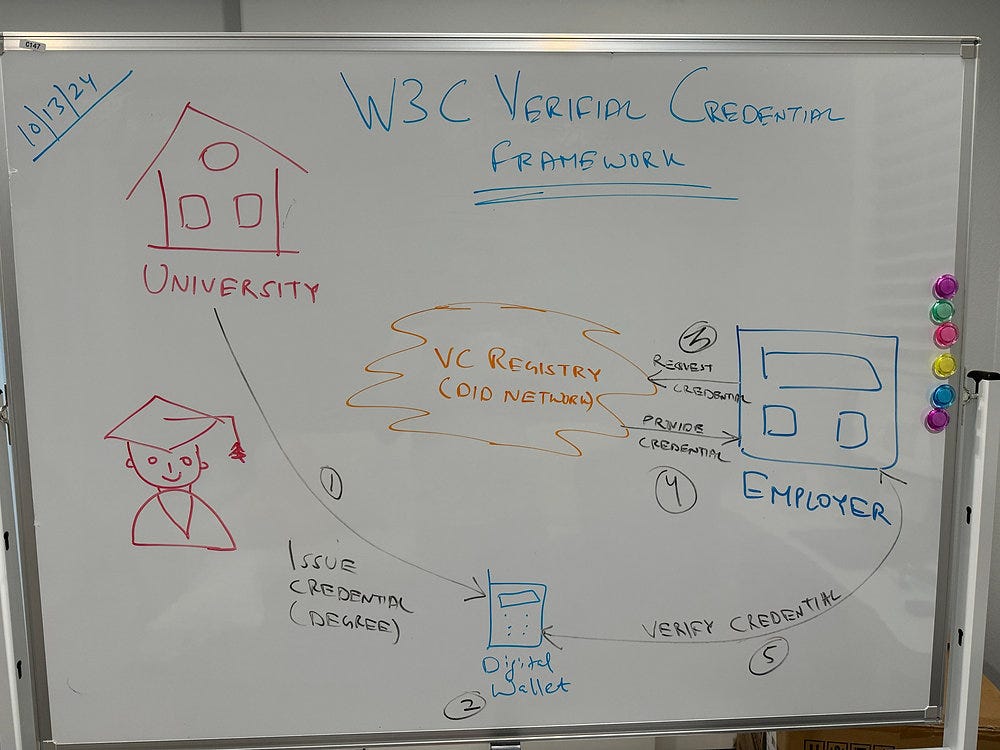 C147
10/13/24
W3C VERIFIAL CREDENTIAL
FRAMEWORK
UNIVERSITY
VC REGISTRY
(DID NETWORK)
3
REQUEST
CREDENTIAL
PROVIDE
CREDENTIAL
4
EMPLOYER
1
ISSUE
CREDENTIAL
(DEGREE)
VERIFY CREDENTIAL
5
Digital
Wallet
2